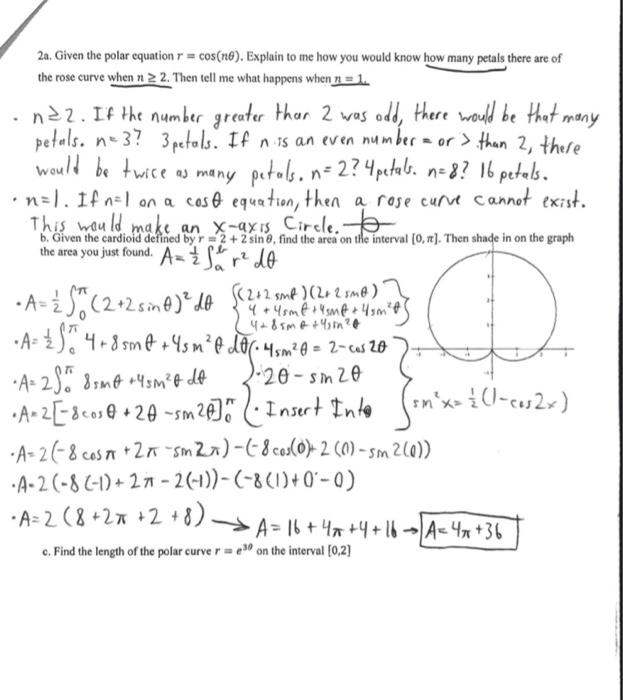 2a. Given the polar equation r = cos(nθ). Explain to me how you would know how many petals there are of
the rose curve when n ≥ 2. Then tell me what happens when n = 1.
· n≥2. If the number greater than 2 was odd, there would be that many
petals. n=3? 3 petals. If n is an even number = or > than 2, there
would be twice as many petals. n=2? 4 petals. n=8? 16 petals.
· n=1. If n=1 on a cosθ equation, then a rose curve cannot exist.
This would make an x-axis Circle.
b. Given the cardioid defined by r = 2 + 2 sin θ, find the area on the interval [0, π]. Then shade in on the graph
the area you just found. A=½∫ₐᵇ r² dθ
·A=½∫₀^π (2+2sinθ)² dθ {(2+2sinθ)(2+2sinθ)
4+4sinθ+4sinθ+4sin²θ
4+8sinθ+4sin²θ}
·A=½∫₀^π 4+8sinθ+4sin²θ dθ {·4sin²θ = 2-cos2θ
·A=2∫₀^π 8sinθ+4sin²θ dθ ·2θ-sin2θ
·A=2[-8cosθ+2θ-sin2θ]₀^π ·Insert Into} {sin²x=½(1-cos2x)
·A=2(-8cosπ+2π-sin2π)-(-8cos(0)+2(0)-sin2(0))
·A=2(-8(-1)+2π-2(-1))-(-8(1)+0-0)
·A=2(8+2π+2+8) → A=16+4π+4+16 → A=4π+36
c. Find the length of the polar curve r = e³ᶿ on the interval [0,2]